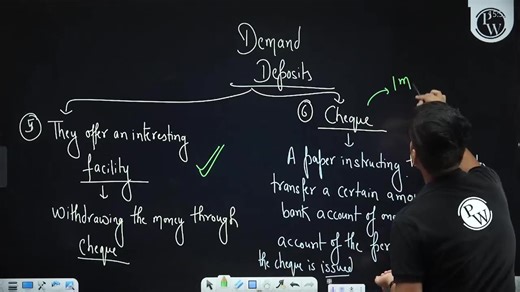 Demand
Deposits
⑤ They offer an interesting
facility
withdrawing the money through
cheque
⑥ Cheque
1m
A paper instructing
transfer a certain
bank account of
account of the
the cheque is issued
PW
PW